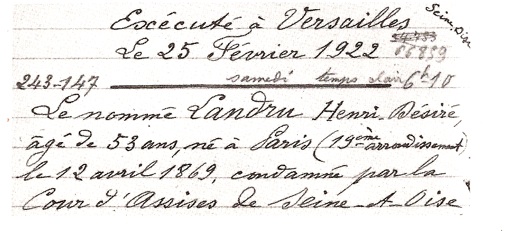 Excécuté à Versailles Seine-Oise
Le 25 Février 1922 66859
243-147 samedi temps clair 6h10
Le nommé Landru Henri Désiré,
âgé de 53 ans, né à Paris (19ème arrondissement)
le 12 avril 1869, condamné par la
Cour d'Assises de Seine-et-Oise